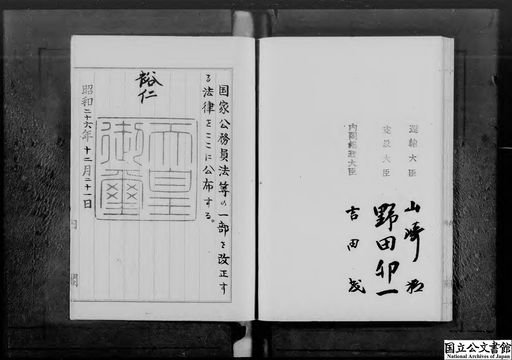 運輸大臣
山崎猛
建設大臣
野田卯一
内閣総理大臣
吉田茂
国家公務員法等の一部を改正す
る法律をここに公布する。
裕仁
天皇
御璽
昭和二十六年十二月二十一日
内閣
国立公文書館
National Archives of Japan